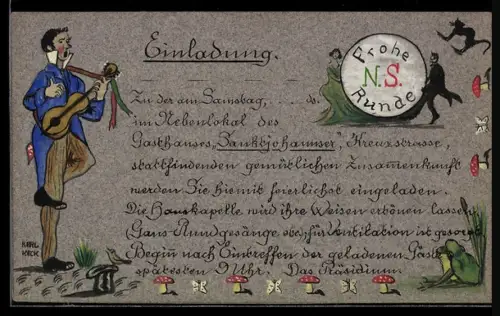 Einladung.
Frohe
N.S.
Runde
Zu der am Samstag, . . . . ds.
im Nebenlokal des
Gasthauses "Sanktjohannser", Kreuzstrasse,
stattfindenden gemütlichen Zusammenkunft
werden Sie hiemit feierlichst eingeladen.
Die Hauskapelle wird ihre Weisen ertönen lassen,
Rundgesänge für Ventilation ist gesorgt
Beginn nach Eintreffen der geladenen Gäste
spätestens 9 Uhr! Das Präsidium.
KARL